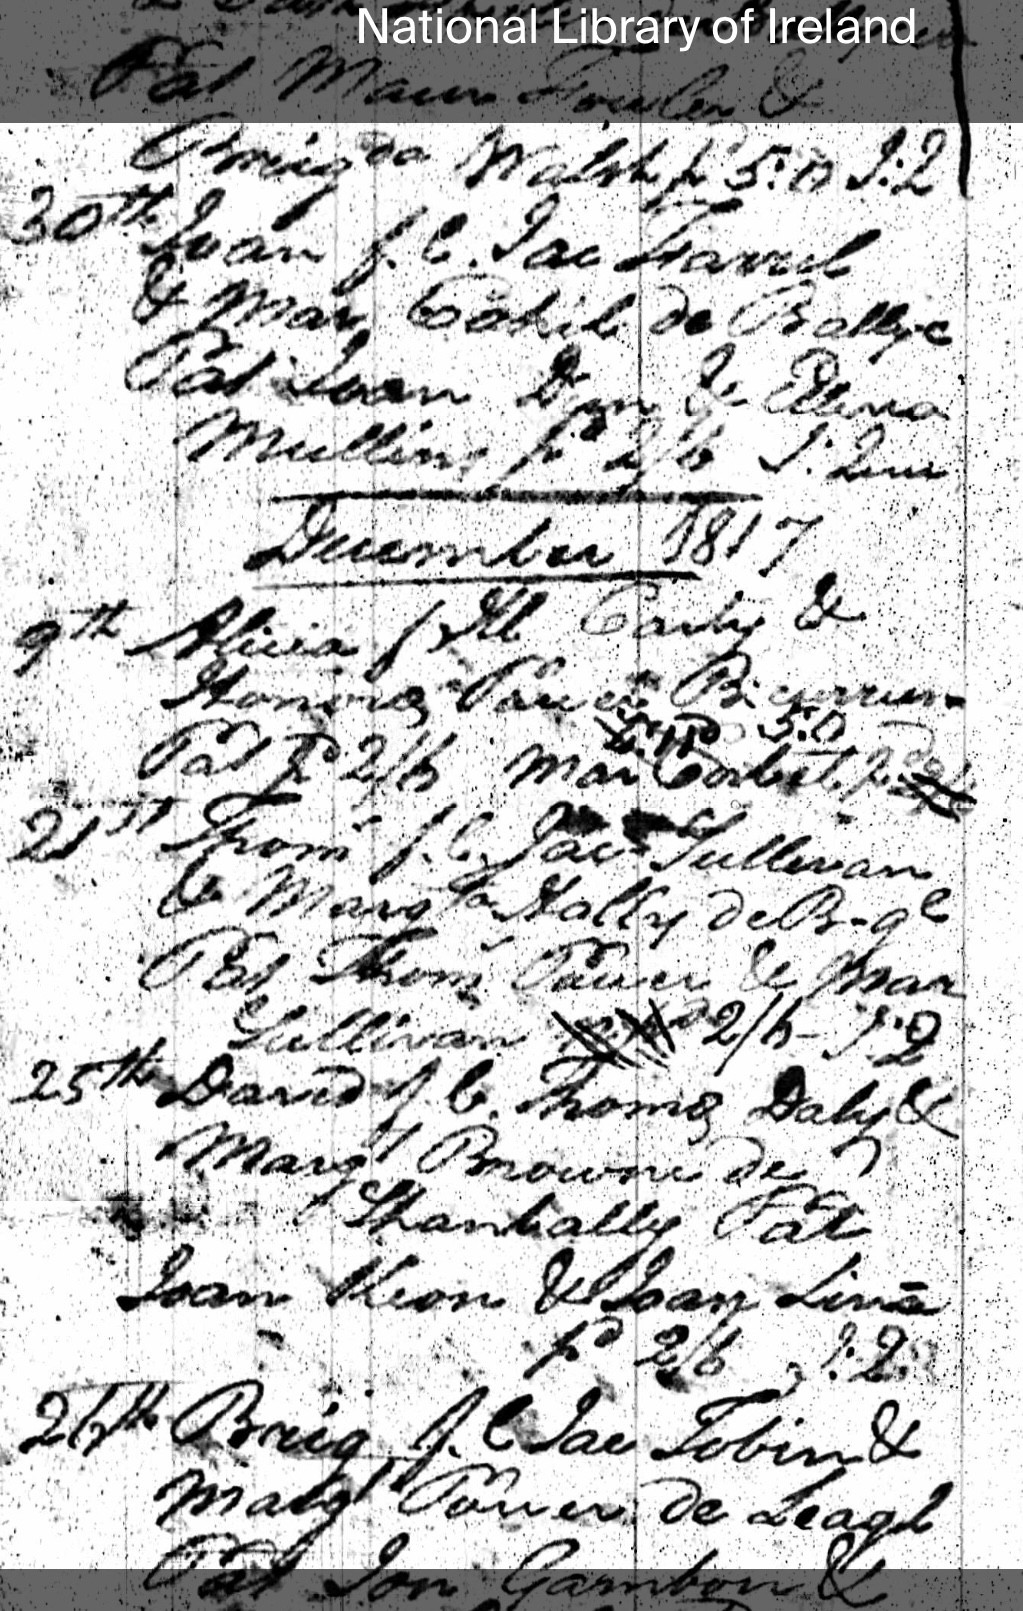 National Library of Ireland
Pat Maur Fowler &
Brig da Walsh pd 5:0 J:Q
30th Joan f. l. Jac Farrel
& Mar Cahil de Ballyc
Pat Joan Dyn & Elena
Mullins pd 2/6 J:
December 1817
9th Alicia f Carty &
Honora Power
5:0
Pat pd 2/6 Mar Corbet
21st Thom f. l. Jac Sullivan
& Margta Hally de B-gl
Pat Thom Power & Mar
Sullivan 2/6- J:Q
25th David f. l. Thomas Daly &
Margt Browne de
Shanbally Pat
Joan Keon & Joan
pd 2/6 J:Q.
26th Brig f. l Jac Tobin &
Margt Power de Leagh
Pat Jon Gambon &